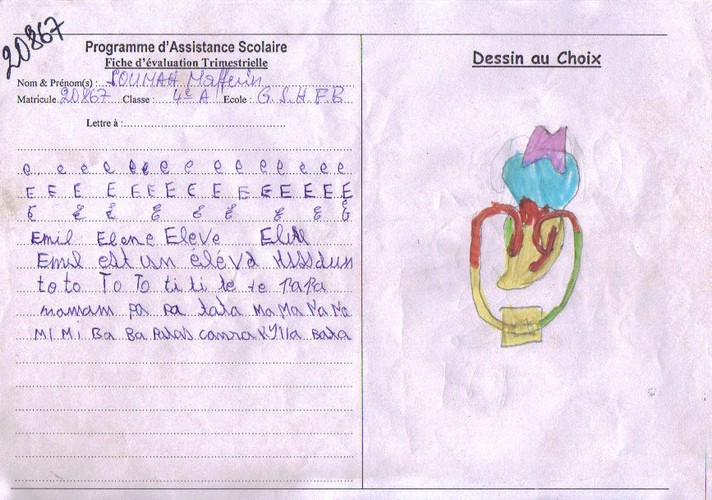 20867
Programme d'Assistance Scolaire
Fiche d'évaluation Trimestrielle
Nom & Prénom(s) : SOUMAH Mafferin
Matricule 20867 Classe : 4e A Ecole : G.S.H.F.B
Lettre à :
e e e e e e e e e e e e e e
E E E E E E E E E E E E E E E
E E E E E E E E E
Emil Elene Eleve
Emil est un élévd
to to To To ti ti te te PaPa
mamam pa pa tata Ma Ma Ma Ma
MI Mi Ba Ba
Dessin au Choix